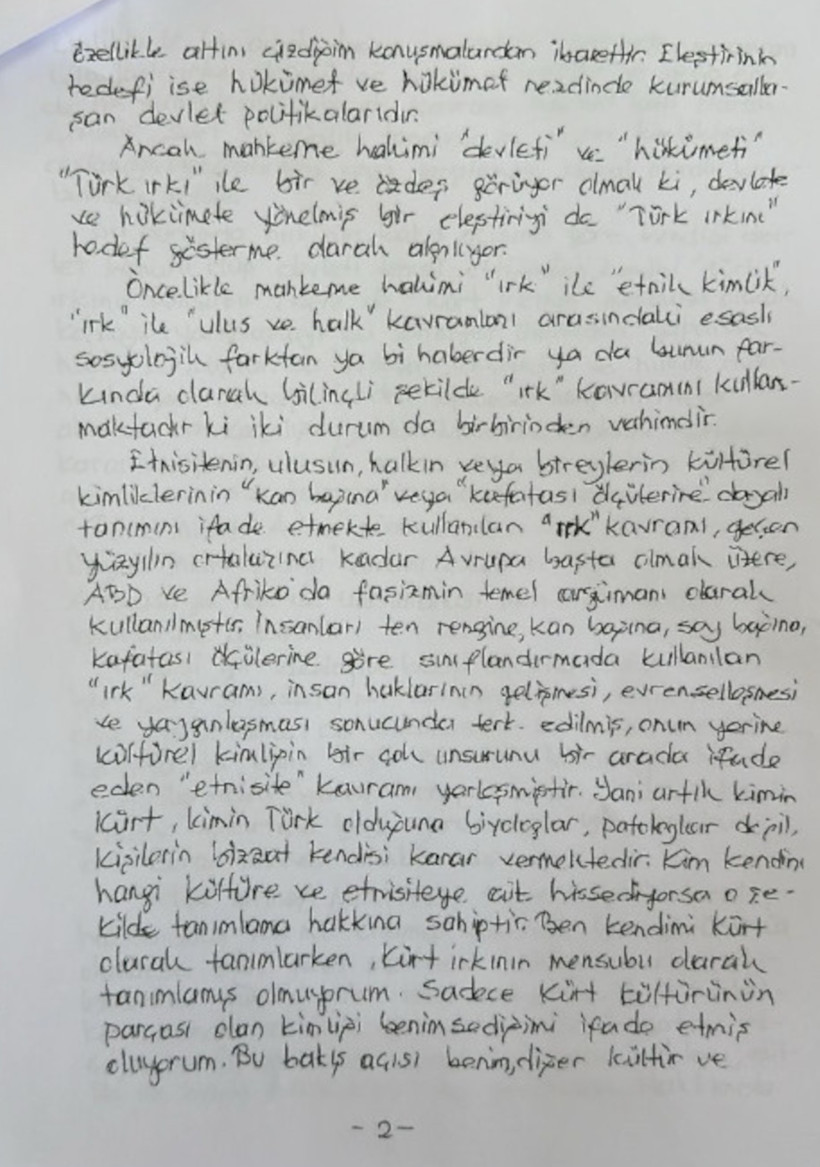 özellikle altını çizdiğim konuşmalardan ibarettir. Eleştirinin
hedefi ise hükümet ve hükümet nezdinde kurumsalla-
şan devlet politikalarıdır.
Ancak mahkeme hakimi "devleti" ve "hükümeti"
"Türk ırkı" ile bir ve özdeş görüyor olmalı ki, devlete
ve hükümete yönelmiş bir eleştiriyi de "Türk ırkını"
hedef gösterme olarak algılıyor.
Öncelikle mahkeme hakimi "ırk" ile "etnik kimlik",
"ırk" ile "ulus ve halk" kavramları arasındaki esaslı
sosyolojik farktan ya bi haberdir ya da bunun far-
kında olarak bilinçli şekilde "ırk" kavramını kullan-
maktadır ki iki durum da birbirinden vahimdir.
Etnisitenin, ulusun, halkın veya bireylerin kültürel
kimliklerinin "kan bağına" veya "kafatası ölçülerine" dayalı
tanımını ifade etmekte kullanılan "ırk" kavramı, geçen
yüzyılın ortalarına kadar Avrupa başta olmak üzere,
ABD ve Afrika'da faşizmin temel argümanı olarak
kullanılmıştır. İnsanları ten rengine, kan bağına, soy bağına,
kafatası ölçülerine göre sınıflandırmada kullanılan
"ırk" kavramı, insan haklarının gelişmesi, evrenselleşmesi
ve yaygınlaşması sonucunda terk edilmiş, onun yerine
kültürel kimliğin bir çok unsurunu bir arada ifade
eden "etnisite" kavramı yerleşmiştir. Yani artık kimin
Kürt, kimin Türk olduğuna biyologlar, patologlar değil,
kişilerin bizzat kendisi karar vermektedir. Kim kendini
hangi kültüre ve etnisiteye ait hissediyorsa o şe-
kilde tanımlama hakkına sahiptir. Ben kendimi Kürt
olarak tanımlarken, Kürt ırkının mensubu olarak
tanımlamış olmuyorum. Sadece Kürt kültürünün
parçası olan kimliği benimsediğimi ifade etmiş
oluyorum. Bu bakış açısı benim, diğer kültür ve
- 2 -